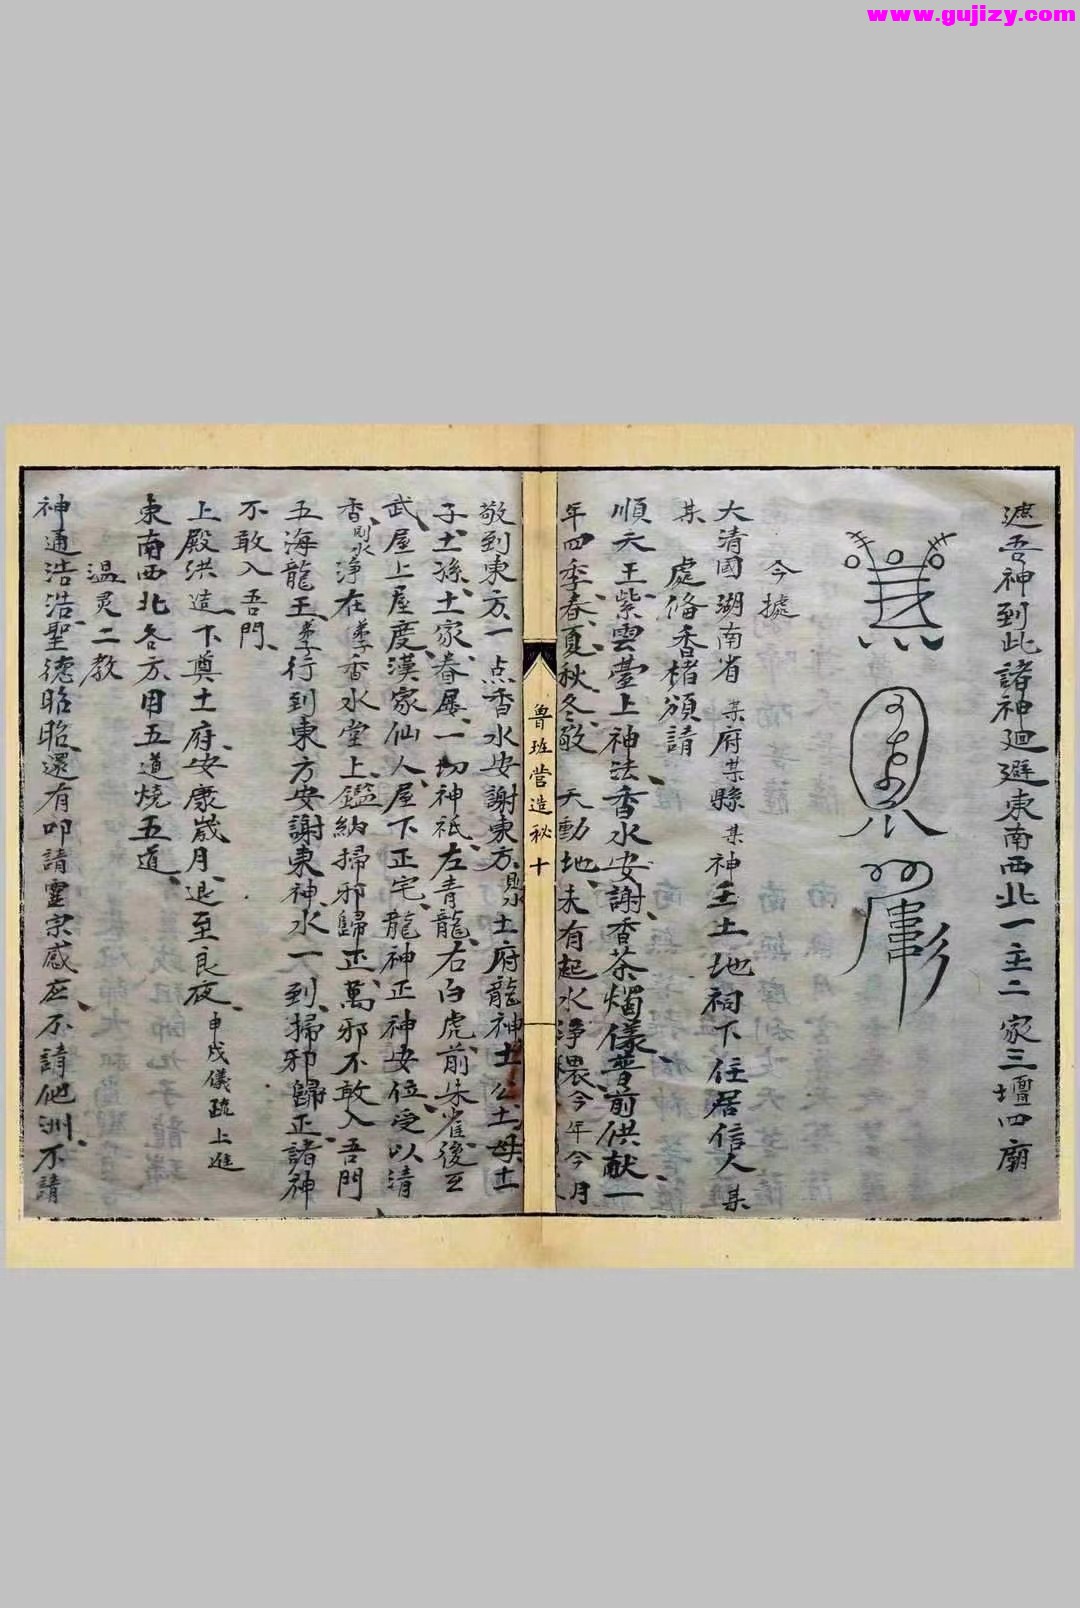 www.gujizy.com
遮吾神到此諸神廻避東南西北一主二家三壇四廟
今據
大清國湖南省某府某縣某神王土地祠下住居信人某
某處俻香楮頒請
順天王紫雲臺上神法香水安謝香茶燭儀普前供献一
年四季春夏秋冬敬天動地未有起水淨穢今年今月
魯班营造秘十
敬到東方一点香水安謝東方則水土府龍神土公土母土
子土孫土家眷屬一切神祇左青龍右白虎前朱雀後玄
武屋上屋度漢家仙人屋下正宅龍神正神安位受以清
香則水淨在弟子香水堂上鑑納掃邪歸正萬邪不敢入吾門
五海龍王弟子行到東方安謝東神水一到掃邪歸正諸神
不敢入吾門
上殿洪造下奠土府安康歲月退至良夜申戌儀疏上進
東南西北各方用五道燒五道
温灵二教
神通浩浩聖德昭昭還有叩請靈宗感应不請他洲不請